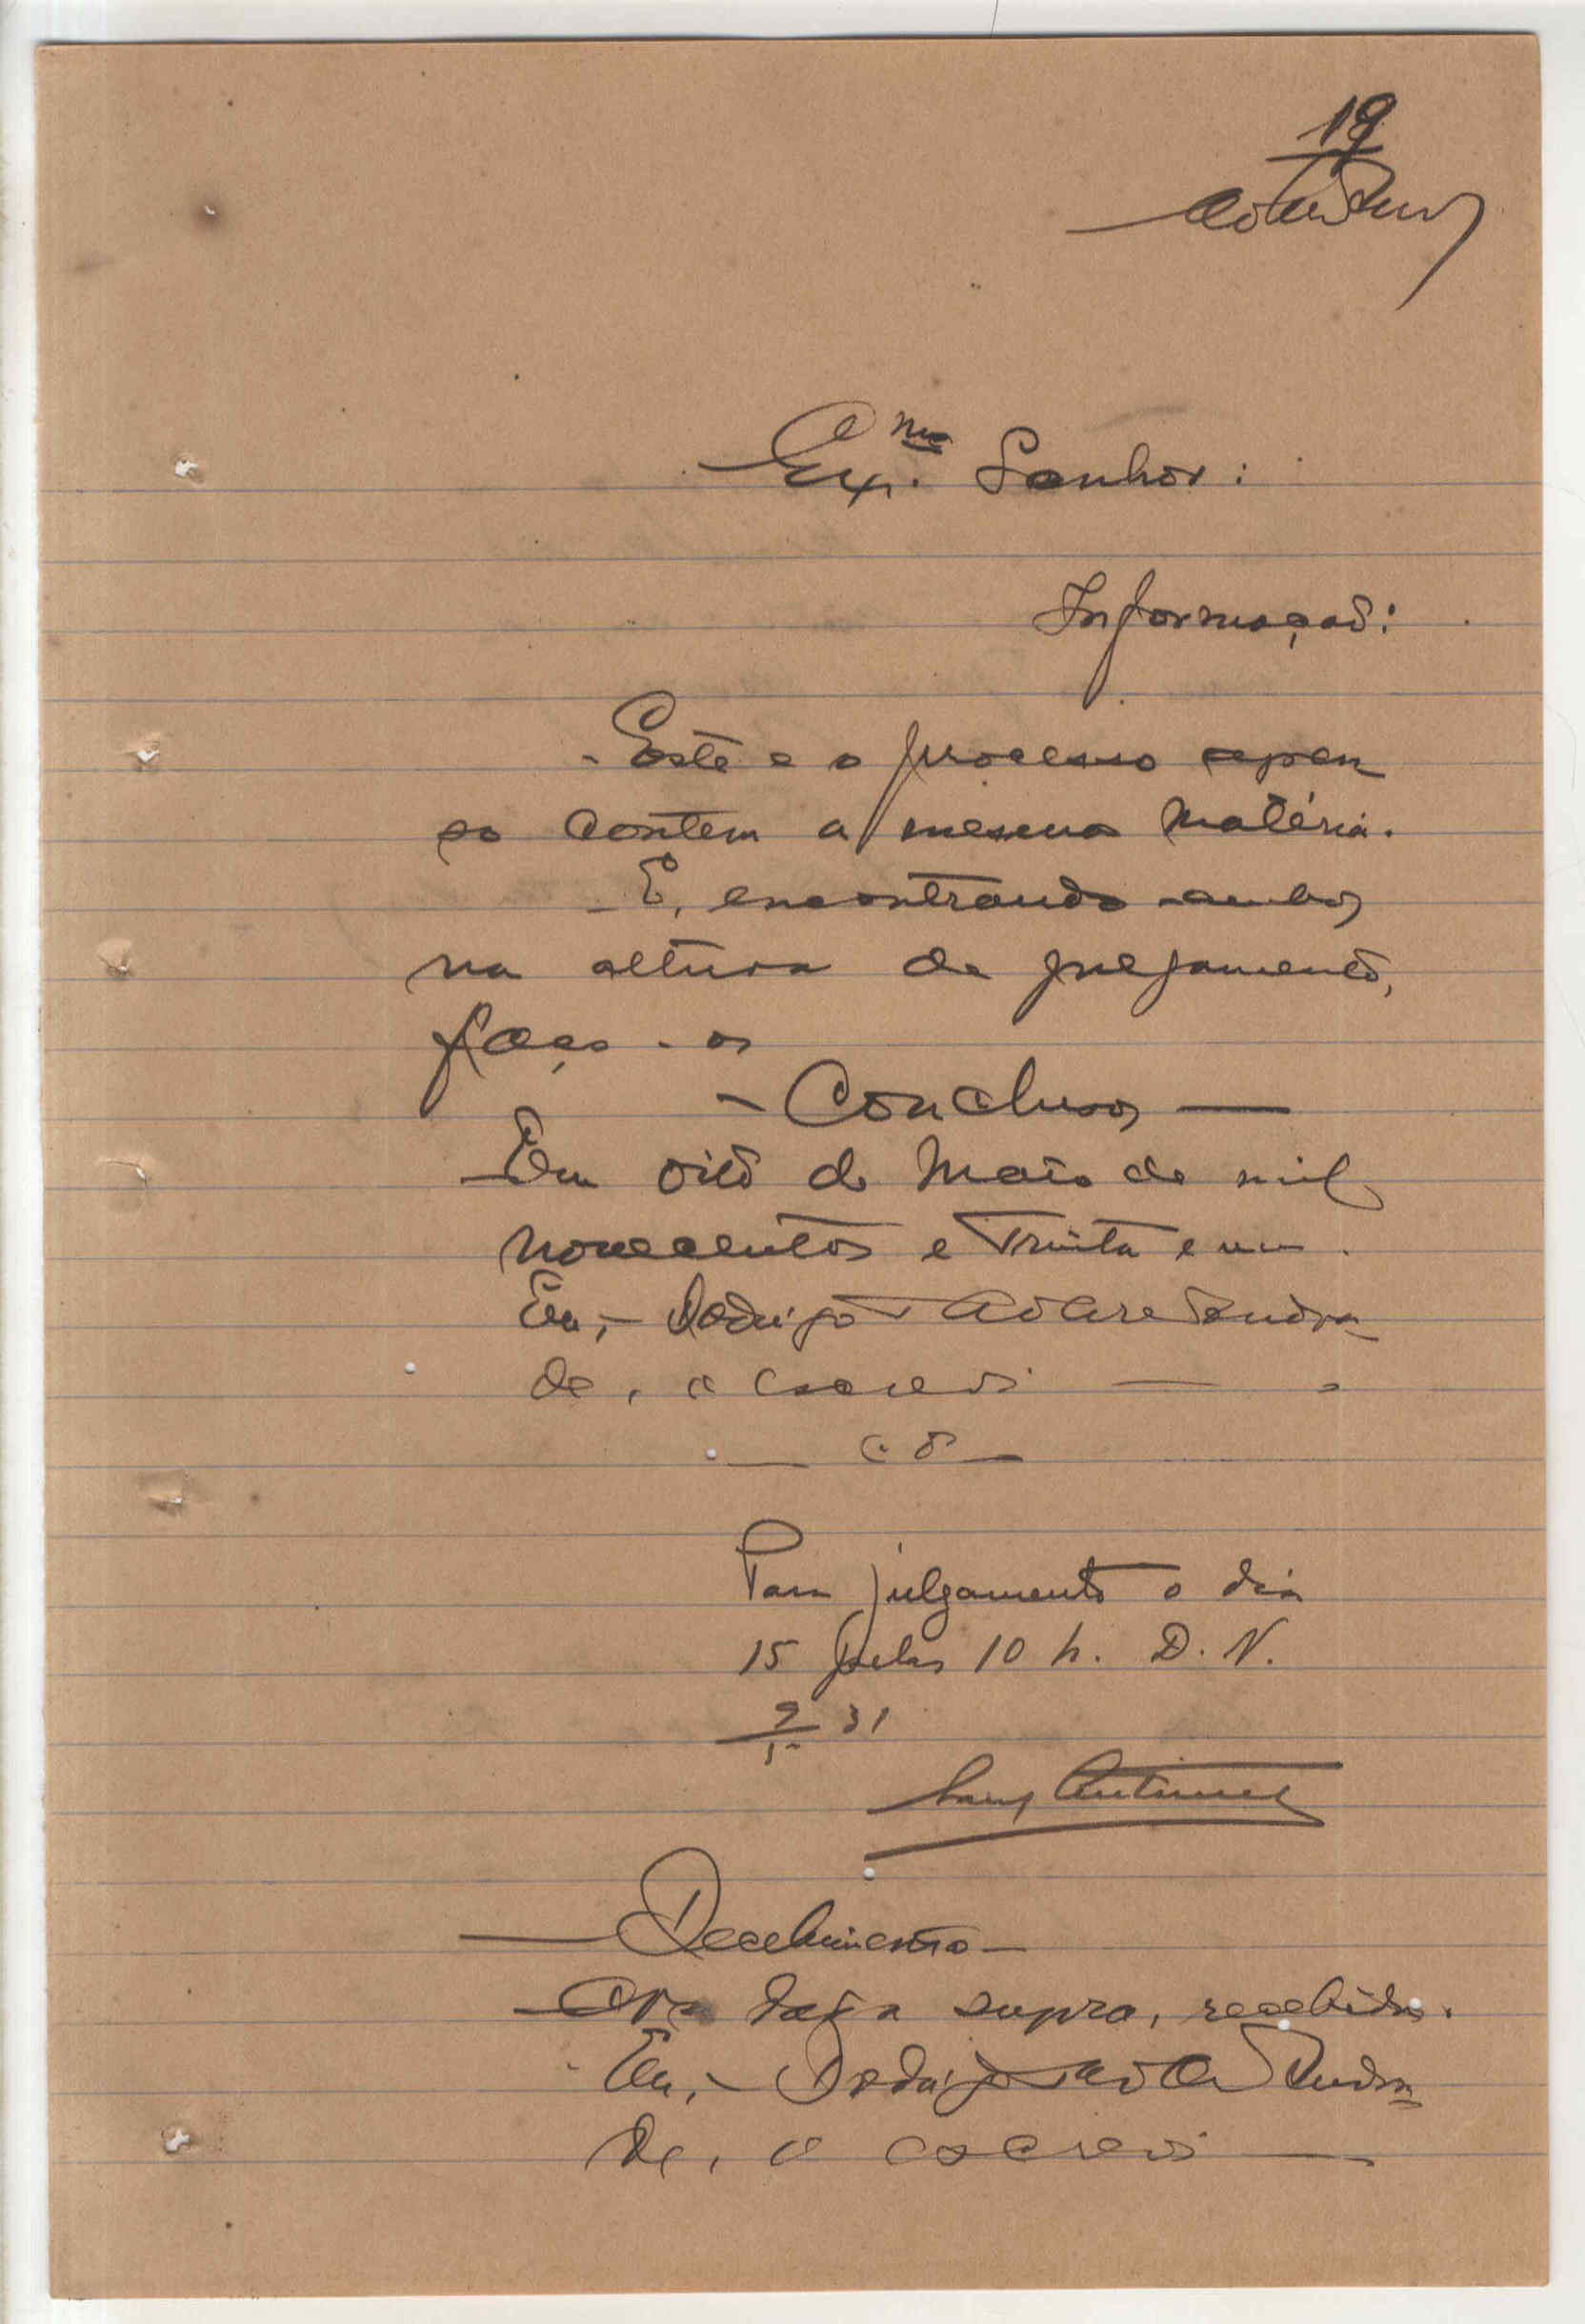 19
Exmo. Senhor:
Informação:
- Este e o processo apen
so contem a mesma matéria.
- E, encontrando ambos
na altura de julgamento,
faço-os
- Conclusos —
Em oito de Maio de mil
novecentos e trinta e um.
Eu, - Rodrigo Andra
de, o escrevi —
Para julgamento o dia
15 pelas 10 h. D. N.
9/5 31
— Recebimento —
Na data supra, recebidos.
- Eu, - Rodrigo Andra
de, o escrevi —